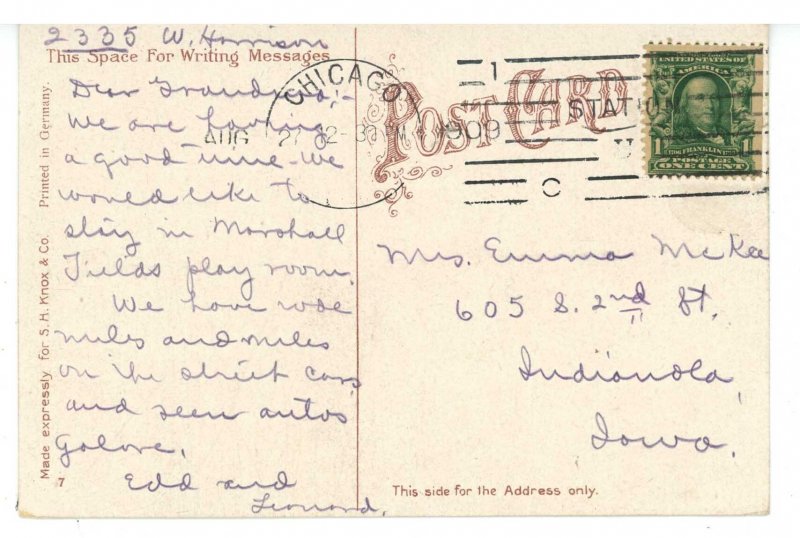 2335 W. Harrison
This Space For Writing Messages
Dear Grandma,-
We are having
a good time we
would like to
stay in Marshall
Fields play room.
We have rode
miles and miles
on the street cars,
and seen autos
galore.
Edd and
Leonard.
Made expressly for S.H. KNOX & CO. Printed in Germany.
7
POST CARD
CHICAGO
AUG 2 2-30 PM 1909
STATION
U
UNITED STATES OF
AMERICA
1 1706 FRANKLIN 1790 1
POSTAGE
ONE CENT
Mrs. Emma McKee
605 S. 2nd St.
Indianola,
Iowa.
This side for the Address only.